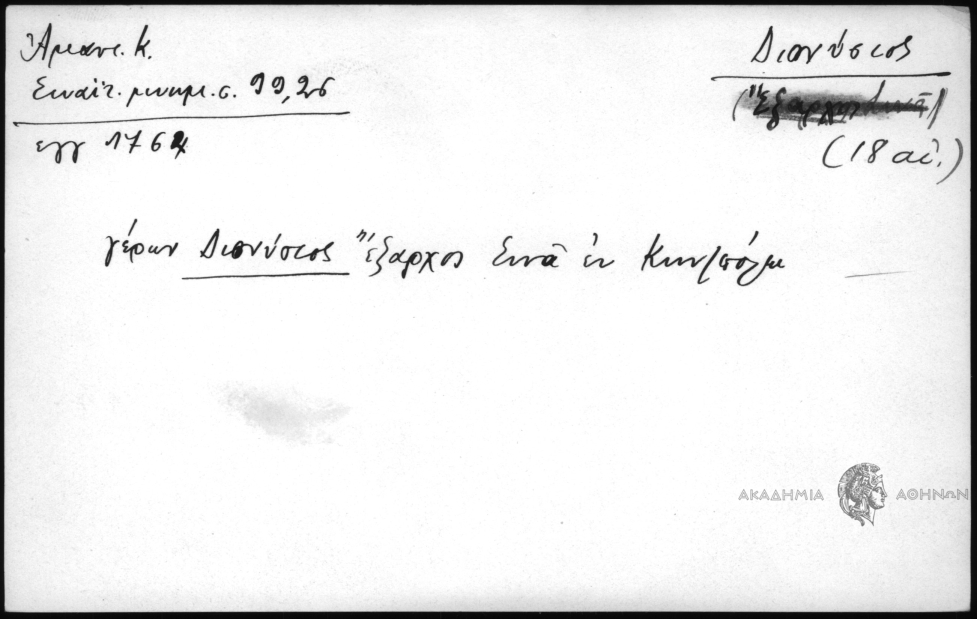 Ἄμαντ. Κ.
Σιναϊτ. μνημ. σ. 99, 26
εγγ 1764
Διονύσιος
(Ἔξαρχος Σινᾶ)
(18 αἰ.)
γέρων Διονύσιος Ἔξαρχος Σινᾶ ἐν Κων/πόλει
ΑΚΑΔΗΜΙΑ ΑΘΗΝΩΝ